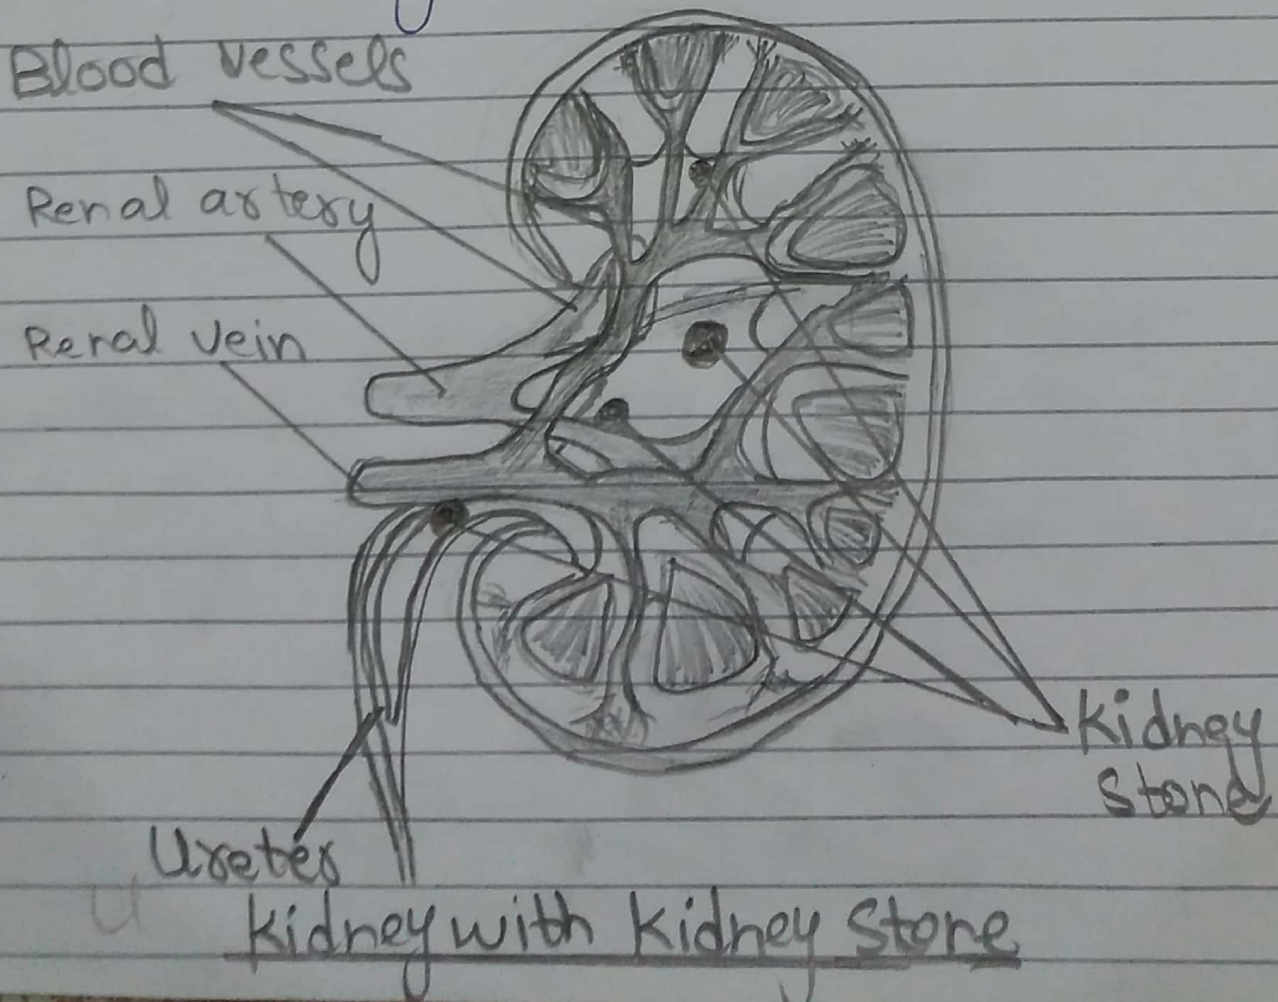 Blood vessels
Renal artery
Renal vein
Kidney
stone
Ureter
Kidney with Kidney Stone